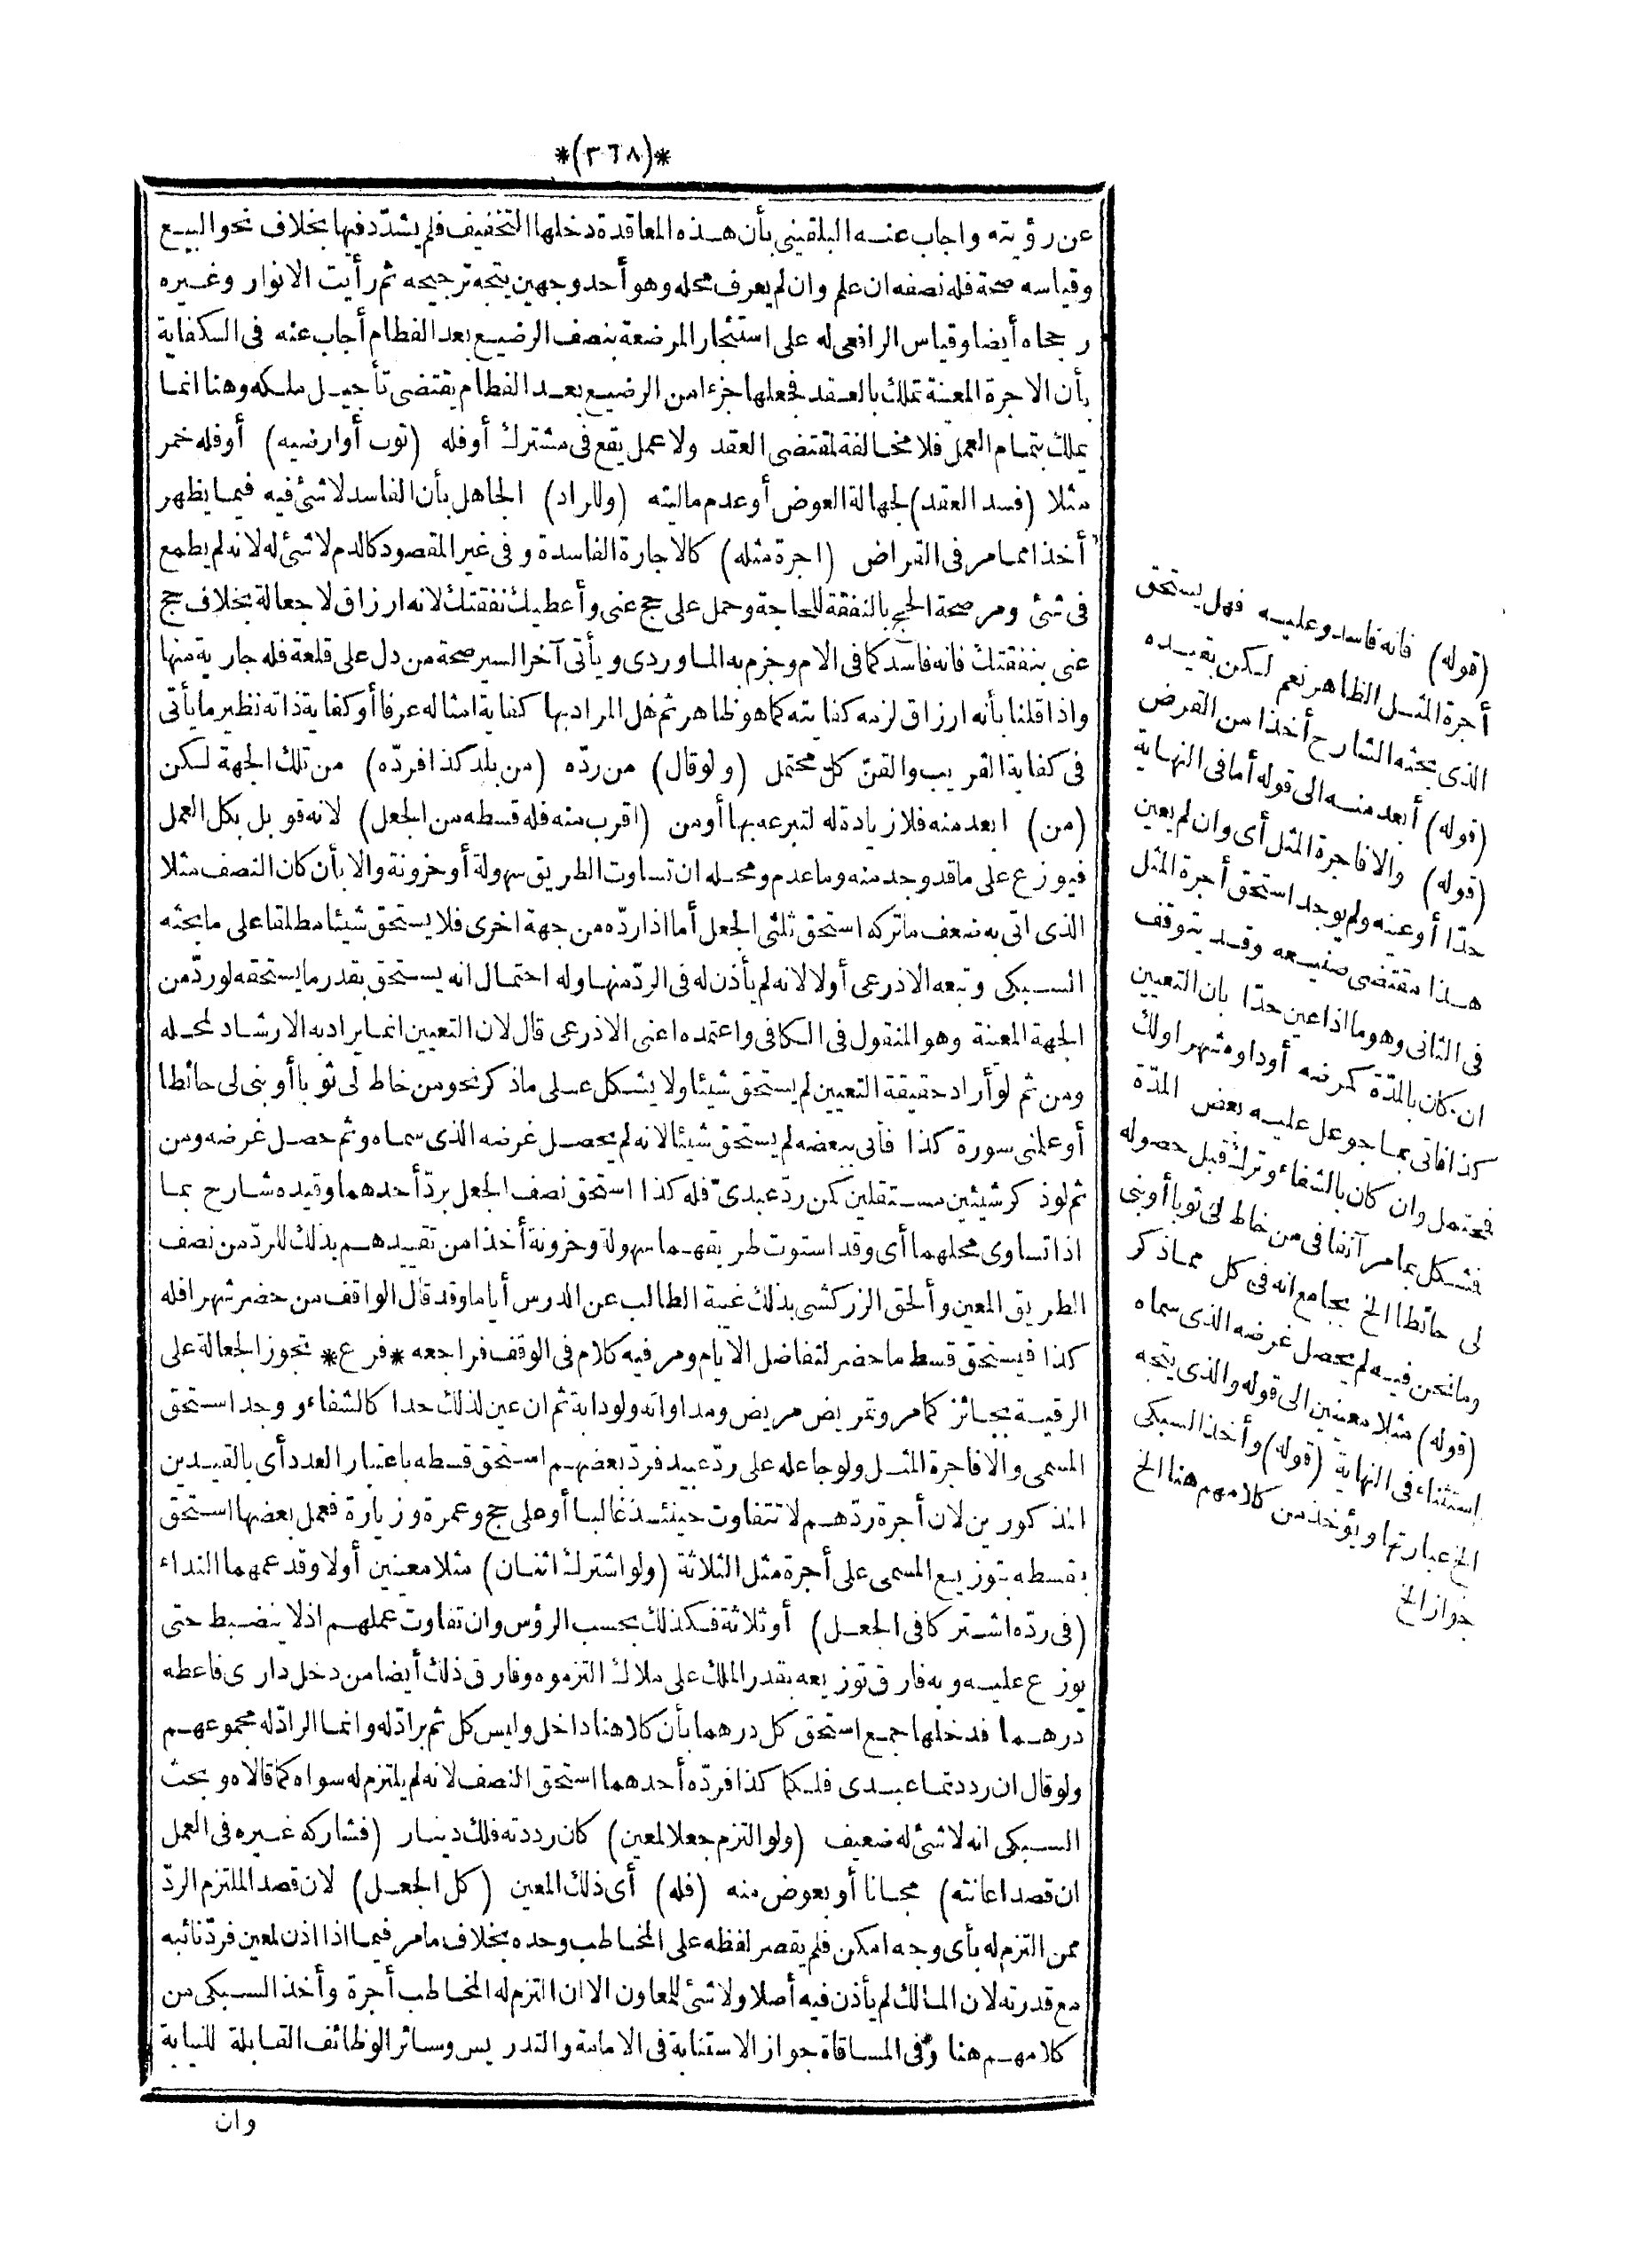 *(٣٦٨)*
عن رؤيته واجاب عنه البلقيني بأن هذه المعاقدة دخلها التخفيف فلم يشدّد فيها بخلاف نحو البيع
وقياسه صحة فله نصفه ان علم وان لم يعرف محله وهو أحد وجهين يتجه ترجيحه ثم رأيت الانوار وغيره
رجحاه أيضا وقياس الرافعى له على استئجار المرضعة بنصف الرضيع بعد الفطام أجاب عنه فى الكفاية
بأن الاجرة المعينة تملك بالعقد فجعلها جزءا من الرضيع بعد الفطام يقتضى تأجيل ملكه وهنا انما
يملك بتمام العمل فلا مخالفة لمقتضى العقد ولا عمل يقع فى مشترك أو فله (ثوب أو ارضيه) أو فله خمر
مثلا (فسد العقد) لجهالة العوض أو عدم ماليته (وللراد) الجاهل بأن الفاسد لا شئ فيه فيما يظهر
أخذا مما مر فى القراض (اجرة مثله) كالاجارة الفاسدة وفى غير المقصود كالدم لا شئ له لانه لم يطمع
فى شئ ومر صحة الحج بالنفقة للحاجة وحمل على حج عنى وأعطيك نفقتك لانه ارزاق لا جعالة بخلاف حج
عنى بنفقتك فانه فاسد كما فى الام وجزم به الماوردى ويأتى آخر السير صحة من دل على قلعة فله جارية منها
واذا قلنا بأنه ارزاق لزمه كفايته كما هو ظاهر ثم هل المراد بها كفاية امثاله عرفا أو كفاية ذاته نظير ما يأتى
فى كفاية القريب والقنّ كل محتمل (ولو قال) من ردّه (من بلد كذا فردّه) من تلك الجهة لكن
(من) ابعد منه فلا زيادة له لتبرعه بها أو من (اقرب منه فله قسطه من الجعل) لانه قوبل بكل العمل
فيوزع على ما قد وجد منه وما عدم ومحله ان تساوت الطريق سهولة أو حزونة والا بأن كان النصف مثلا
الذى اتى به ضعف ما تركه استحق ثلثى الجعل أما اذا ردّه من جهة اخرى فلا يستحق شيئا مطلقا على ما بحثه
السبكى وتبعه الاذرعى أولا لانه لم يأذن له فى الردّ منها وله احتمال انه يستحق بقدر ما يستحقه لو ردّ من
الجهة المعينة وهو المنقول فى الكافى واعتمده اعنى الاذرعى قال لان التعيين انما يراد به الارشاد لمحله
ومن ثم لو أراد حقيقة التعيين لم يستحق شيئا ولا يشكل على ما ذكر نحو من خاط لى ثوبا أو بنى لى حائطا
أو علمنى سورة كذا فأتى ببعضه لم يستحق شيئا لانه لم يحصل غرضه الذى سماه وثم حصل غرضه ومن
ثم لو ذكر شيئين مستقلين كمن ردّ عبدىّ فله كذا استحق نصف الجعل بردّ أحدهما وقيده شارح بما
اذا تساوى محلهما أى وقد استوت طريقهما سهولة وحزونة أخذا من تقييدهم بذلك للردّ من نصف
الطريق المعين وألحق الزركشى بذلك غيبة الطالب عن الدرس أياما وقد قال الواقف من حضر شهرا فله
كذا فيستحق قسط ما حضر لتفاضل الايام ومر فيه كلام فى الوقف فراجعه *فرع* تجوز الجعالة على
الرقية بجائز كما مر وتمريض مريض ومداواته ولو دابة ثم ان عين لذلك حدا كالشفاء ووجد استحق
المسمى والا فاجرة المثل ولو جاعله على ردّ عبيد فردّ بعضهم استحق قسطه باعتبار العدد أى بالقيدين
المذكورين لان أجرة ردّهم لا تتفاوت حينئذ غالبا أو على حج وعمرة وزيارة فعمل بعضها استحق
بقسطه بتوزيع المسمى على أجرة مثل الثلاثة (ولو اشترك اثنان) مثلا معينين أولا وقد عمهما النداء
(فى ردّه اشتركا فى الجعل) أو ثلاثة فكذلك بحسب الرؤس وان تفاوت عملهم اذ لا ينضبط حتى
يوزع عليه وبه فارق توزيعه بقدر الملك على ملاك التزموه وفارق ذلك أيضا من دخل دارى فاعطه
درهما فدخلها جمع استحق كل درهما بأن كلا هنا داخل وليس كل ثم برادّ له وانما الرادّ له مجموعهم
ولو قال ان رددتما عبدى فلكما كذا فردّه أحدهما استحق النصف لانه لم يلتزم له سواه كما قالاه وبحث
السبكى انه لا شئ له ضعيف (ولو التزم جعلا لمعين) كان رددته فلك دينار (فشاركه غيره فى العمل
ان قصد اعانته) مجانا أو بعوض منه (فله) أى ذلك المعين (كل الجعل) لان قصد الملتزم الردّ
ممن التزم له بأى وجه امكن فلم يقصر لفظه على المخاطب وحده بخلاف ما مر فيما اذا اذن لمعين فردّ نائبه
مع قدرته لان المالك لم يأذن فيه أصلا ولا شئ للمعاون الا ان التزم له المخاطب أجرة وأخذ السبكى من
كلامهم هنا وفى المساقاة جواز الاستنابة فى الامامة والتدريس وسائر الوظائف القابلة للنيابة
وان
(قوله) فانه فاسد وعليه فهل يستحق
أجرة المثل الظاهر نعم لكن بقيده
الذى بحثه الشارح أخذا من القرض
(قوله) أبعد منه الى قوله أما فى النهاية
(قوله) والا فاجرة المثل أى وان لم يعين
حدّا أو عينه ولم يوجد استحق أجرة المثل
هذا مقتضى صنيعه وقد يتوقف
فى الثانى وهو ما اذا عين حدّا بان التعيين
ان كان بالمدّة كمرضه أو داوه شهرا ولك
كذا فاتى بما جوعل عليه بعض المدّة
فمحتمل وان كان بالشفاء وترك قبل حصوله
فمشكل بما مر آنفا فى من خاط لى ثوبا أو بنى
لى حائطا الخ بجامع انه فى كل مما ذكر
وما نحن فيه لم يحصل غرضه الذى سماه
(قوله) مثلا معينين الى قوله والذى يتجه
استثناء فى النهاية (قوله) وأخذ السبكى
الخ عبارتها ويؤخذ من كلامهم هنا الخ
جواز الخ